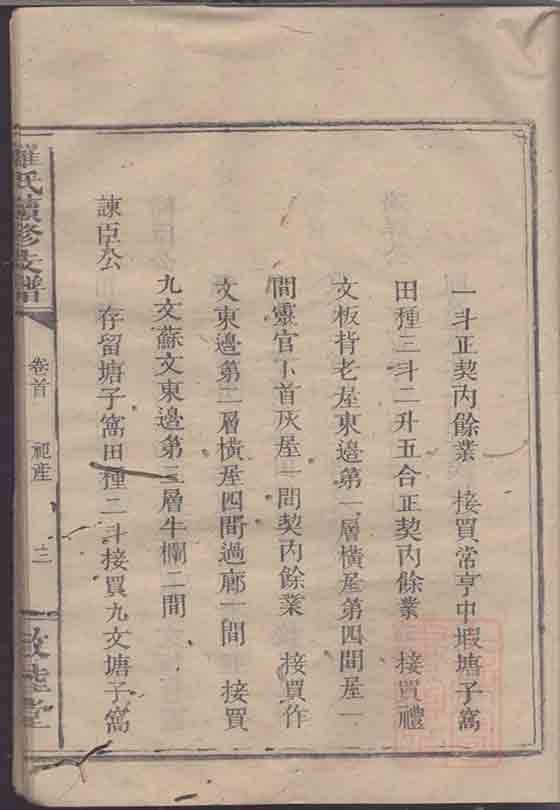 一斗正契內餘業　接買常亨中塅塘子窩
田種三斗二升五合正契內餘業　接買禮
文板背老屋東邊第一層橫屋第四間屋一
間靈官下首灰屋一間契內餘業　接買作
文東邊第二層橫屋四間過廊一間　接買
九文蘇文東邊第三層牛欄二間
諫臣公　存留塘子窩田種二斗接買九文塘子窩
羅氏續修支譜
卷首　祀產　二
敦睦堂